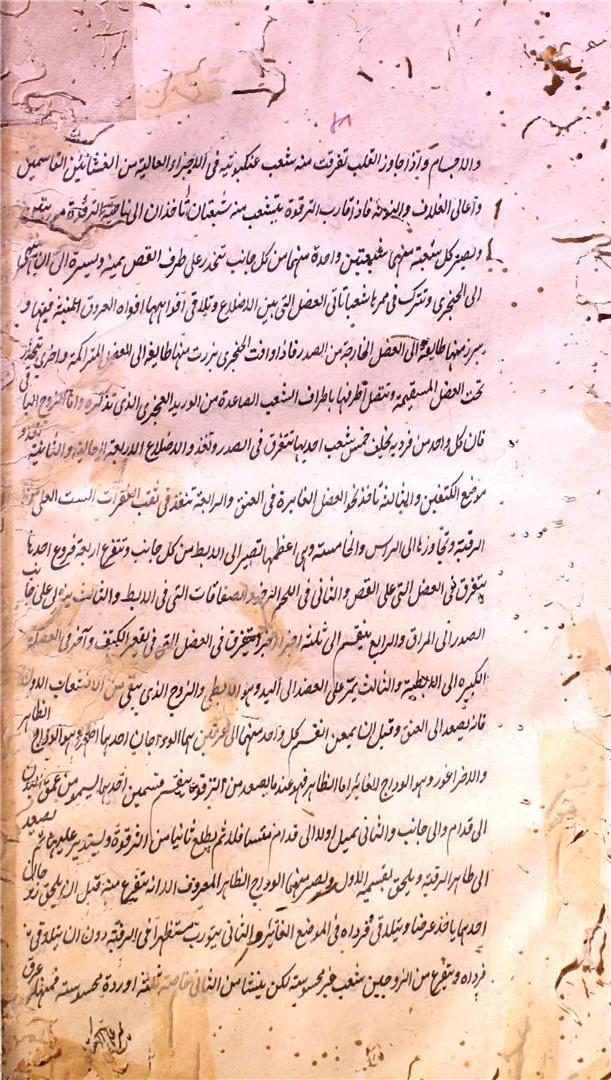 والاجسام واذا جاوز القلب تفرقت منه شعب عنكبوتيه فى الاجزاء العالية من الغشائين القاسمين
واعالى الغلاف فاذا قارب الترقوة يتشعب منه شعبتان تأخذان الى ناحية الترقوة
ويصير كل شعبة منهما شعبتين واحدة منهما من كل جانب تنحدر على طرف القص يمينه ويسيرة الى ان ينتهى
الى الحنجرى وتترك فى ممرها شعبا تاتى العضل التى بين الاضلاع وتلاقى افواهها افواه العروق المنبثة فيها و
يبرز منها طايفة الى العضل الخارجة من الصدر فاذا وافت الحنجرى برزت منها طايفة الى العضل المتراكمة واخرى تنحدر
تحت العضل المستقيمة وتتصل اطرفها باطراف الشعب الصاعدة من الوريد العجزى الذى تذكره واما الزوج الباقى
فان كل واحد من فرديه يخلف خمس شعب احديها تتفرق فى الصدر وتغذو الاضلاع الاربعة العالية والثانية تغذو
موضع الكتفين والثالثة تأخذ نحو العضل الغايرة فى العنق والرابعة تنفذ فى ثقب الفقرات الست العلى من
الرقبة وتجاوزها الى الراس والخامسة وهى اعظمها تصير الى الابط من كل جانب وتتفرع اربعة فروع احدها
يتفرق فى العضل التى على القص والثانى فى اللحم الرخو والصفاقات التى فى الابط والثالث ينزل على جانب
الصدر الى المراق والرابع ينقسم الى ثلثة اجزاء جزء يتفرق فى العضل التى فى تقعير الكتف وآخر فى العضلة
الكبيره الى الابطية والثالث يمر على العضد الى اليد وهو الابطى والزوج الذى يبقى من الانشعاب الاول
فانه يصعد الى العنق وقبل ان يمعن انقسم كل واحد منهما الى فرقتين هما الوداجان احدهما وهو الوداج الظاهر
والاخر اغور وهو الوداج الغائر اما الظاهر فهو عند ما يصعد من الترقوة ينقسم قسمين احدهما
الى قدام والى جانب والثانى يميل اولا الى قدام متسافلا ثم يطلع ثانيا من الترقوة ويستدير عليها ثم يصعد
الى ظاهر الرقبة ويلحق بقسمه الاول ويصير منهما الوداج الظاهر المعروف الا انه يتفرع منه قبل ان يلحق
احدهما ياخذ عرضا ويتلاقى فرداه فى الموضع الغائر والثانى يتورب مستظهرا فى الرقبة دون ان يتلاقى
فرداه ويتفرع من الزوجين شعب غير محسوسة لكن ينشا من الثانى خاصة ثلثة اوردة محسوسة